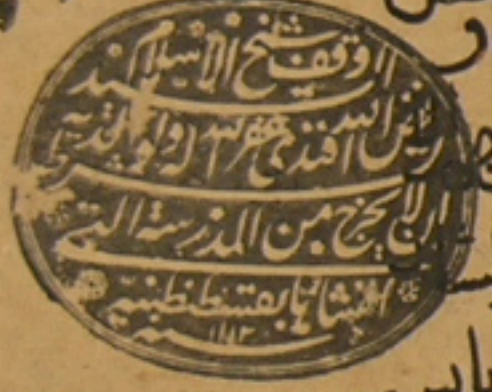 وقف شيخ الاسلام السيد
فيض الله افندى غفر الله له ولوالديه
بشرط ان لا يخرج من المدرسة التى
انشأها بقسطنطينية
سنة ١١١٣